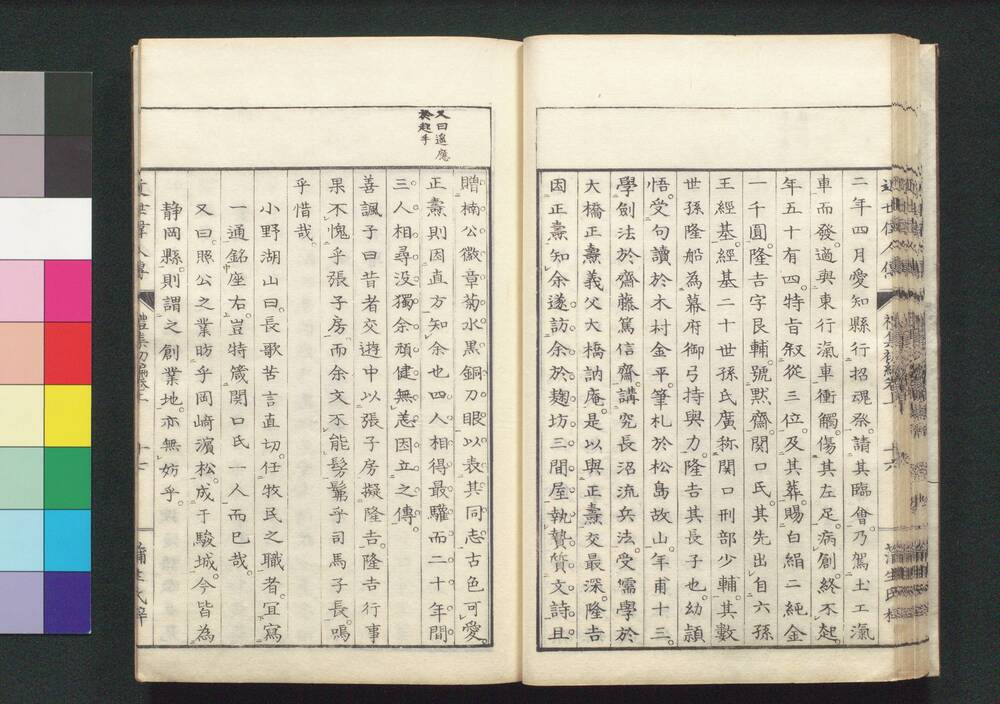 二年四月愛知縣行招魂祭請其臨會乃駕土工滊
車而發適與東行滊車衝觸傷其左足病創終不起
年五十有四特旨叙從三位及其葬賜白絹二純金
一千圓隆吉字艮輔號默齋関口氏其先出自六孫
王經基經基二十世孫氏廣称関口刑部少輔其數
世孫隆船為幕府御弓持與力隆吉其長子也幼頴
悟受句讀於木村金平筆札於松島故山年甫十三
學劍法於齋藤篤信齋講究長沼流兵法受儒學於
大橋正燾義父大橋訥庵是以與正燾交最深隆吉
因正燾知余遂訪余於麹坊三間屋執贄質文詩且
贈楠公徽章菊水黒銅刀眼以表其同志古色可愛
正燾則因直方知余也四人相得最驩而二十年間
三人相尋没獨余頑健無恙因立之傳
善諷子曰昔者交遊中以張子房擬隆吉隆吉行事
果不愧乎張子房而余文不能髣髴乎司馬子長嗚
乎惜哉
小野湖山曰長歌苦言直切任牧民之職者宜寫
一通銘座右豈特箴関口氏一人而已哉
又曰照公之業昉乎岡﨑濵松成于駿城今皆為
静岡縣則謂之創業地亦無妨乎
又曰遥應
於起手